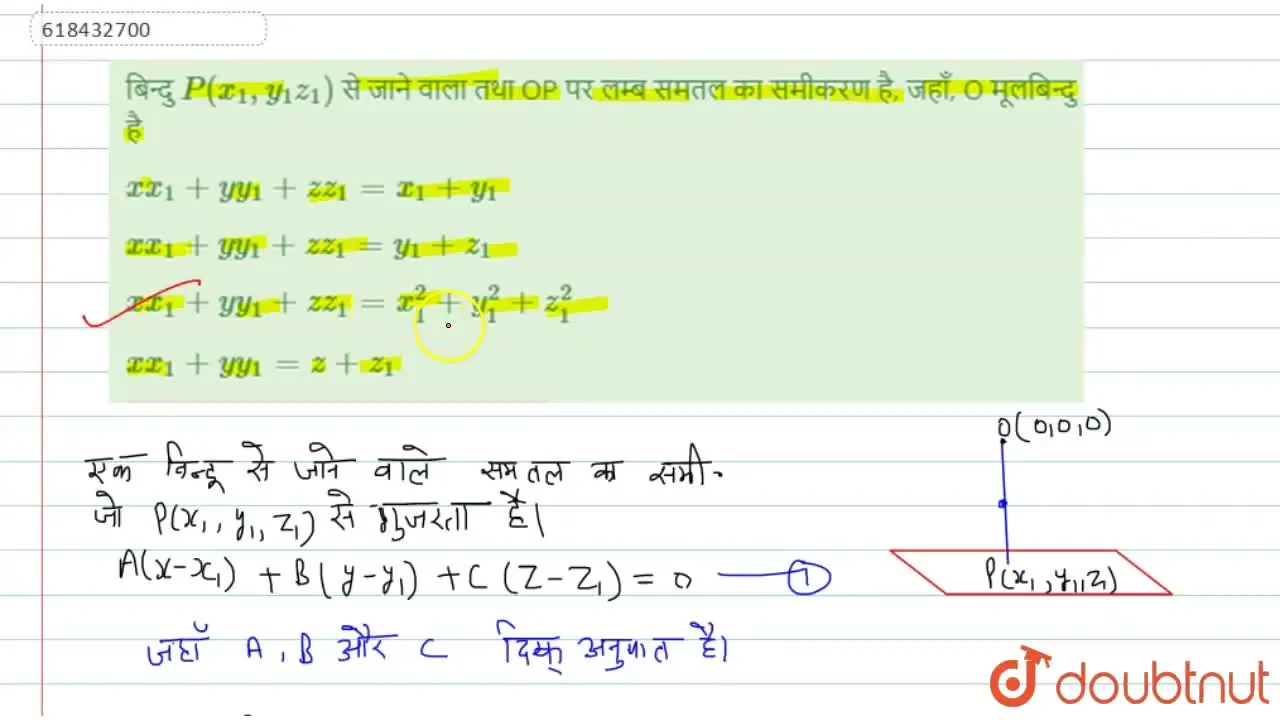 618432700
बिन्दु P(x₁, y₁z₁) से जाने वाला तथा OP पर लम्ब समतल का समीकरण है, जहाँ, O मूलबिन्दु
है
xx₁ + yy₁ + zz₁ = x₁ + y₁
xx₁ + yy₁ + zz₁ = y₁ + z₁
xx₁ + yy₁ + zz₁ = x₁² + y₁² + z₁²
xx₁ + yy₁ = z + z₁
O(0,0,0)
एक बिन्दू से जाने वाले समतल का समी॰
जो P(x₁, y₁, z₁) से गुजरता है।
A(x-x₁) + B(y-y₁) + C(z-z₁) = 0 — ①
P(x₁, y₁, z₁)
जहाँ A, B और C दिक् अनुपात है।
doubtnut